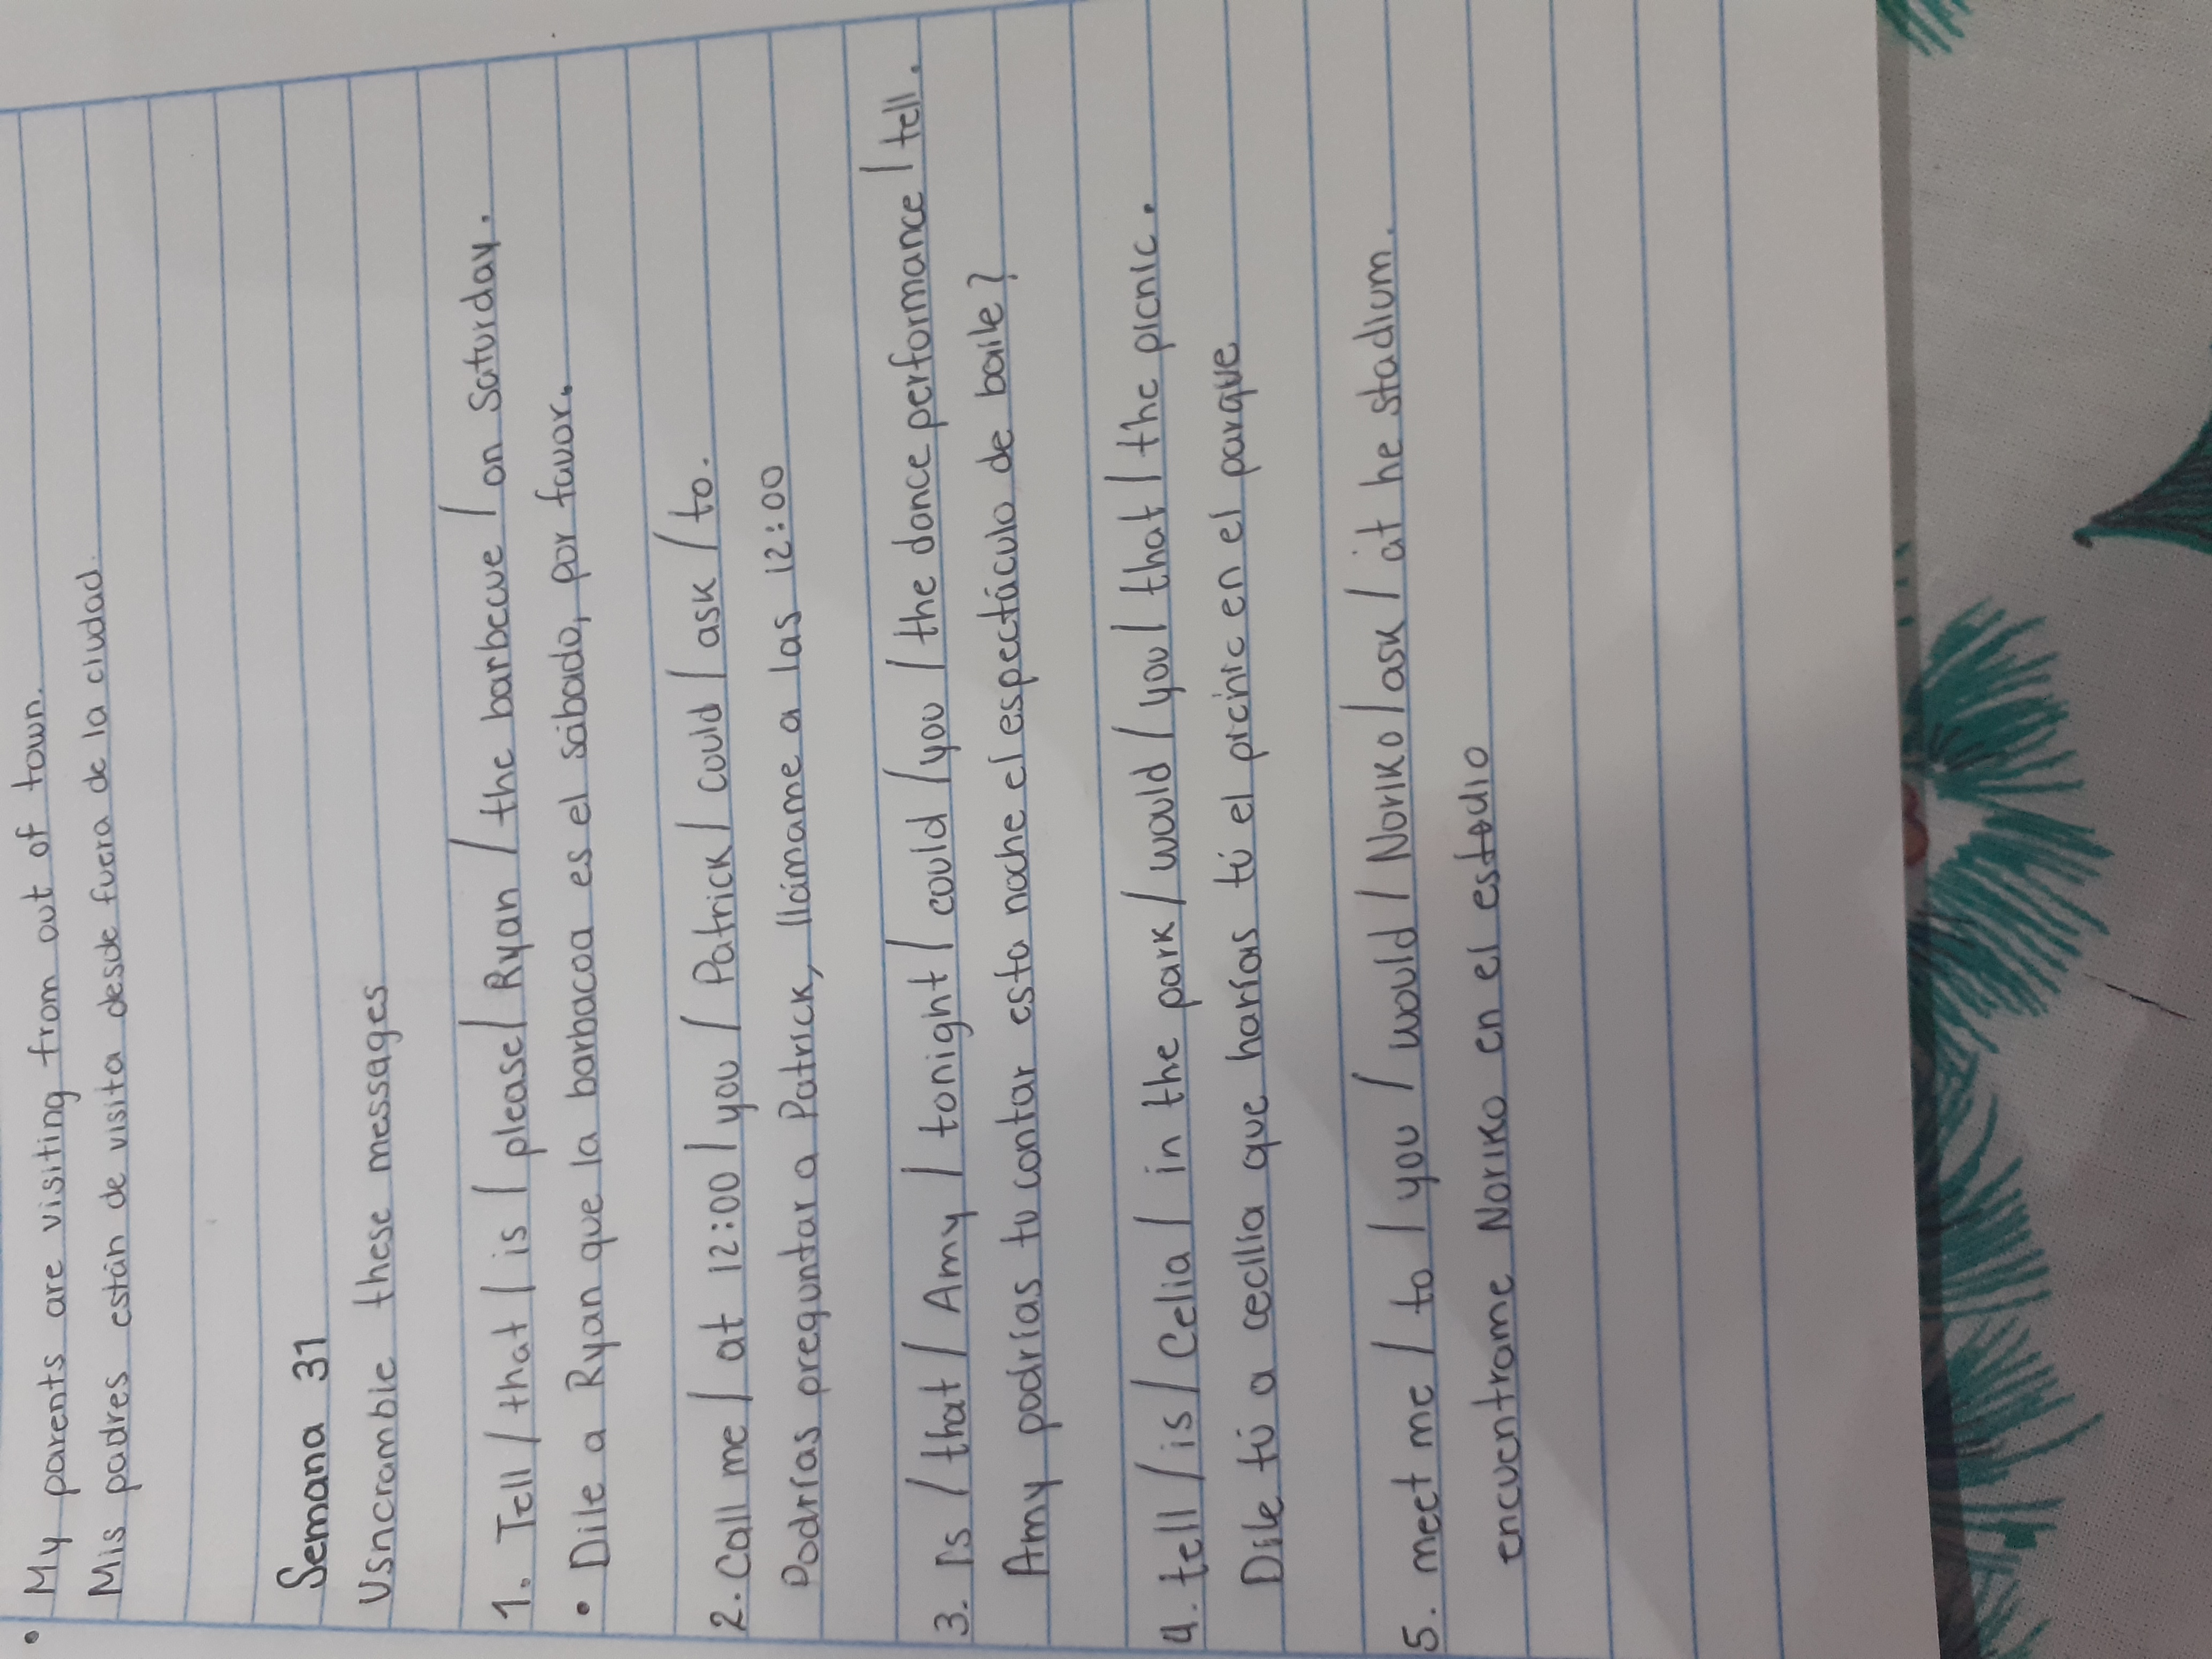 • My parents are visiting from out of town.
Mis padres están de visita desde fuera de la ciudad.
Semana 31
Usncramble these messages
1. Tell / that / is / please / Ryan / the barbecue / on Saturday.
• Dile a Ryan que la barbacoa es el sábado, por favor.
2. Call me / at 12:00 / you / Patrick / could / ask / to.
Podrías preguntar a Patrick, llámame a las 12:00
3. Is / that / Amy / tonight / could / you / the dance performance / tell.
Amy podrías tu contar esta noche el espectáculo de baile?
4. tell / is / Celia / in the park / would / you / that / the picnic.
Dile tú a cecilia que harías tú el picinic en el parque
5. meet me / to / you / would / Noriko / ask / at he stadium.
encuentrame Noriko en el estadio